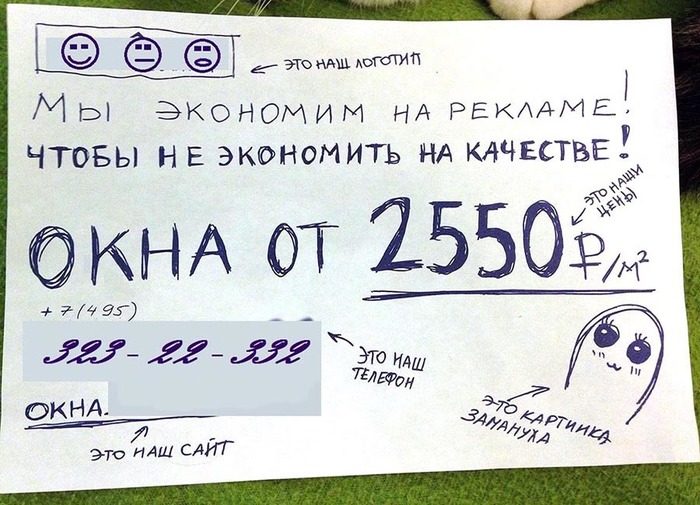 ЭТО НАШ ЛОГОТИП
МЫ ЭКОНОМИМ НА РЕКЛАМЕ!
ЧТОБЫ НЕ ЭКОНОМИТЬ НА КАЧЕСТВЕ!
ЭТО НАШИ
ЦЕНЫ
ОКНА ОТ 2550 ₽/М²
+7(495)
323-22-332
ЭТО НАШ
ТЕЛЕФОН
ОКНА.
ЭТО КАРТИНКА
ЗАМАНУХА
ЭТО НАШ САЙТ